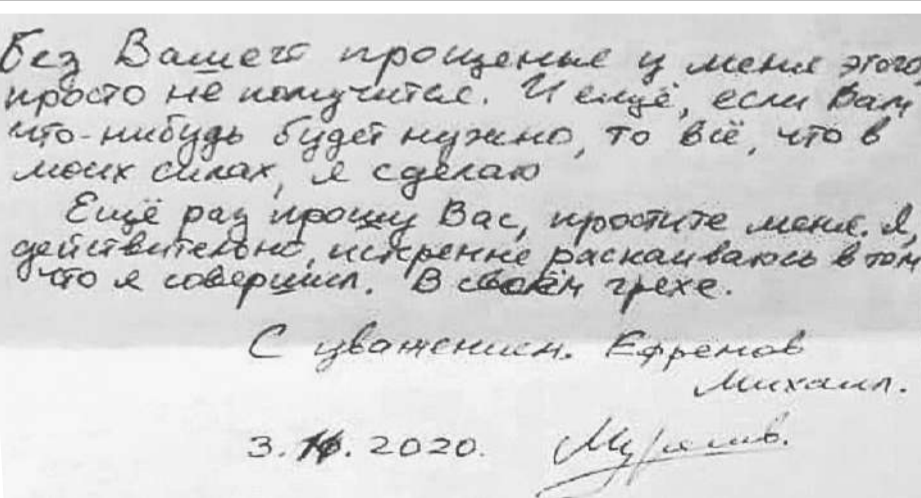 Без Вашего прощенья у меня этого
просто не получится. И ещё, если Вам
что-нибудь будет нужно, то всё, что в
моих силах, я сделаю
Ещё раз прошу Вас, простите меня. Я,
действительно, искренне раскаиваюсь в том
что я совершил. В своём грехе.
С уважением. Ефремов
Михаил.
3. 2020.